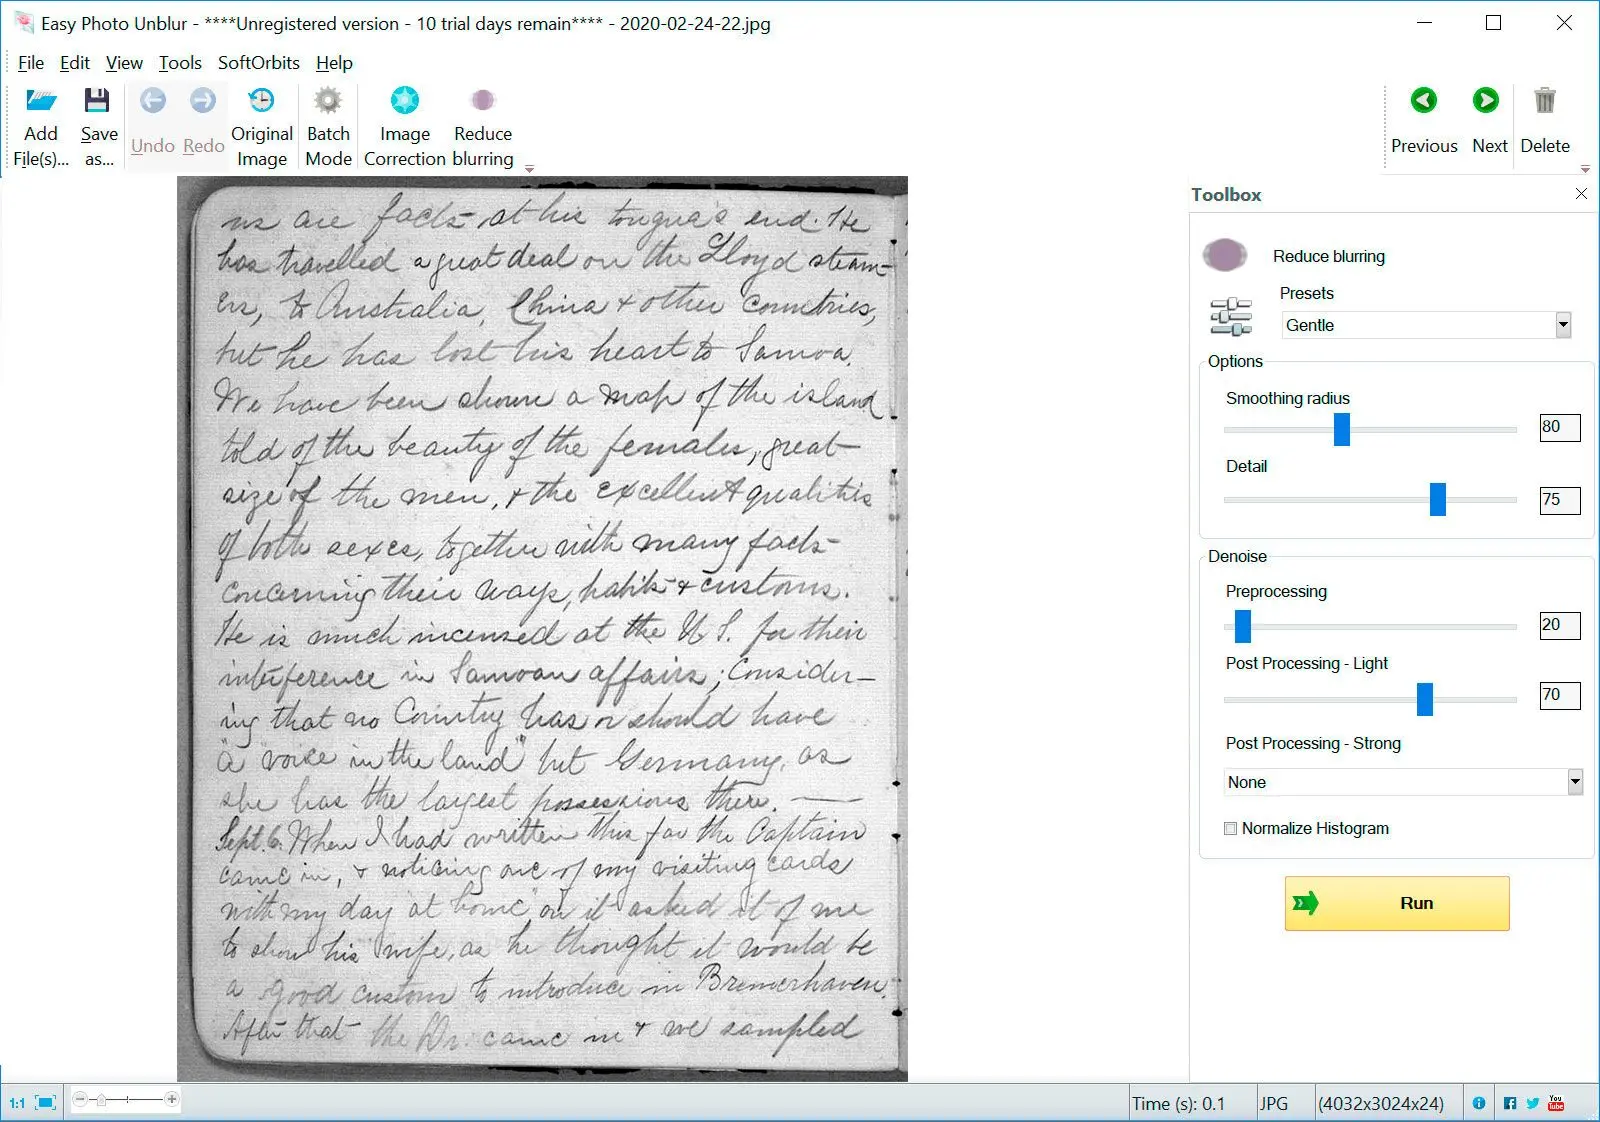 Easy Photo Unblur - ****Unregistered version - 10 trial days remain**** - 2020-02-24-22.jpg
File Edit View Tools SoftOrbits Help
Add File(s)...
Save as...
Undo
Redo
Original Image
Batch Mode
Image Correction
Reduce blurring
Previous
Next
Delete
us are facts at his tongue's end. He
has travelled a great deal on the Lloyd steam-
ers, to Australia, China & other countries,
but he has lost his heart to Samoa.
We have been shown a map of the island
told of the beauty of the females, great
size of the men, & the excellent qualities
of both sexes, together with many facts
concerning their ways, habits & customs.
He is much incensed at the U S. for their
interference in Samoan affairs; consider-
ing that no Country has or should have
"a voice in the land" but Germany, as
she has the largest possessions there. —
Sept. 6. When I had written thus far the Captain
came in, & noticing one of my visiting cards
with my day "at home" on it asked it of me
to show his wife, as he thought it would be
a good custom to introduce in Bremerhaven.
After that the Dr. came in & we sampled
Toolbox
Reduce blurring
Presets
Gentle
Options
Smoothing radius
80
Detail
75
Denoise
Preprocessing
20
Post Processing - Light
70
Post Processing - Strong
None
Normalize Histogram
Run
1:1
Time (s): 0.1
JPG
(4032x3024x24)
You Tube